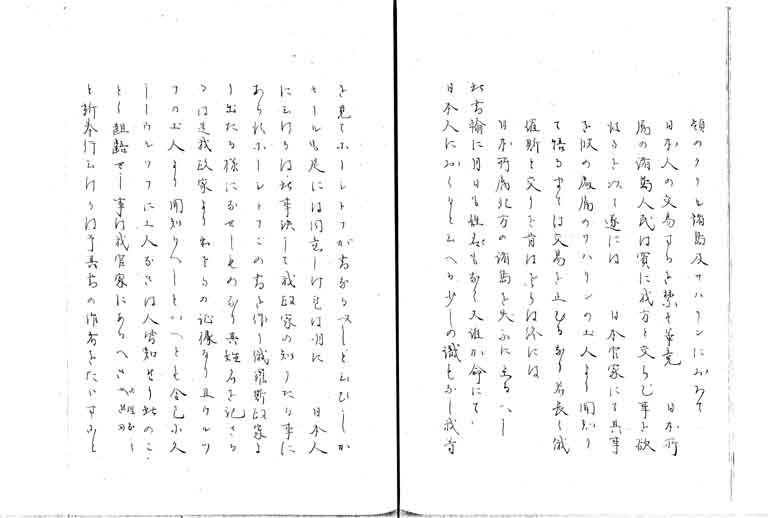 領のクリル諸島及サハリンにおゐて
日本人の交易するを禁せ畢竟 日本所
属の諸島人民は實に我方と交らむ事を欲
けるを以て遂には 日本官家にて其事
を彼の属のサハリンの土人より聞知り
て悟るまては交易を止むるなり若長く俄
羅斯と交りを肯はさらは終には
日本所属北方の諸島を失ふに至るへし
此書輸に月日も姓名もなく又誰か命にて
日本人におくるといへる少しの識もなし我等
を見てホーレトフが書ならんとおもひしか
モールも是には同意しけれは明に 日本人
に云けるは此事決して我政家の知りたる事に
あらすホーレトフこの書を作り俄羅斯政家よ
り出たる様になせしものなり其姓名を記さゝ
るは是我政家より出さるの証據なり且
の土人より聞知るへしといへとも
に土人なきは人皆知せり此のこ
とく齟齬せし事は我官家にあるへき
と新奉行云けるは予其書の作者をたゝすこと